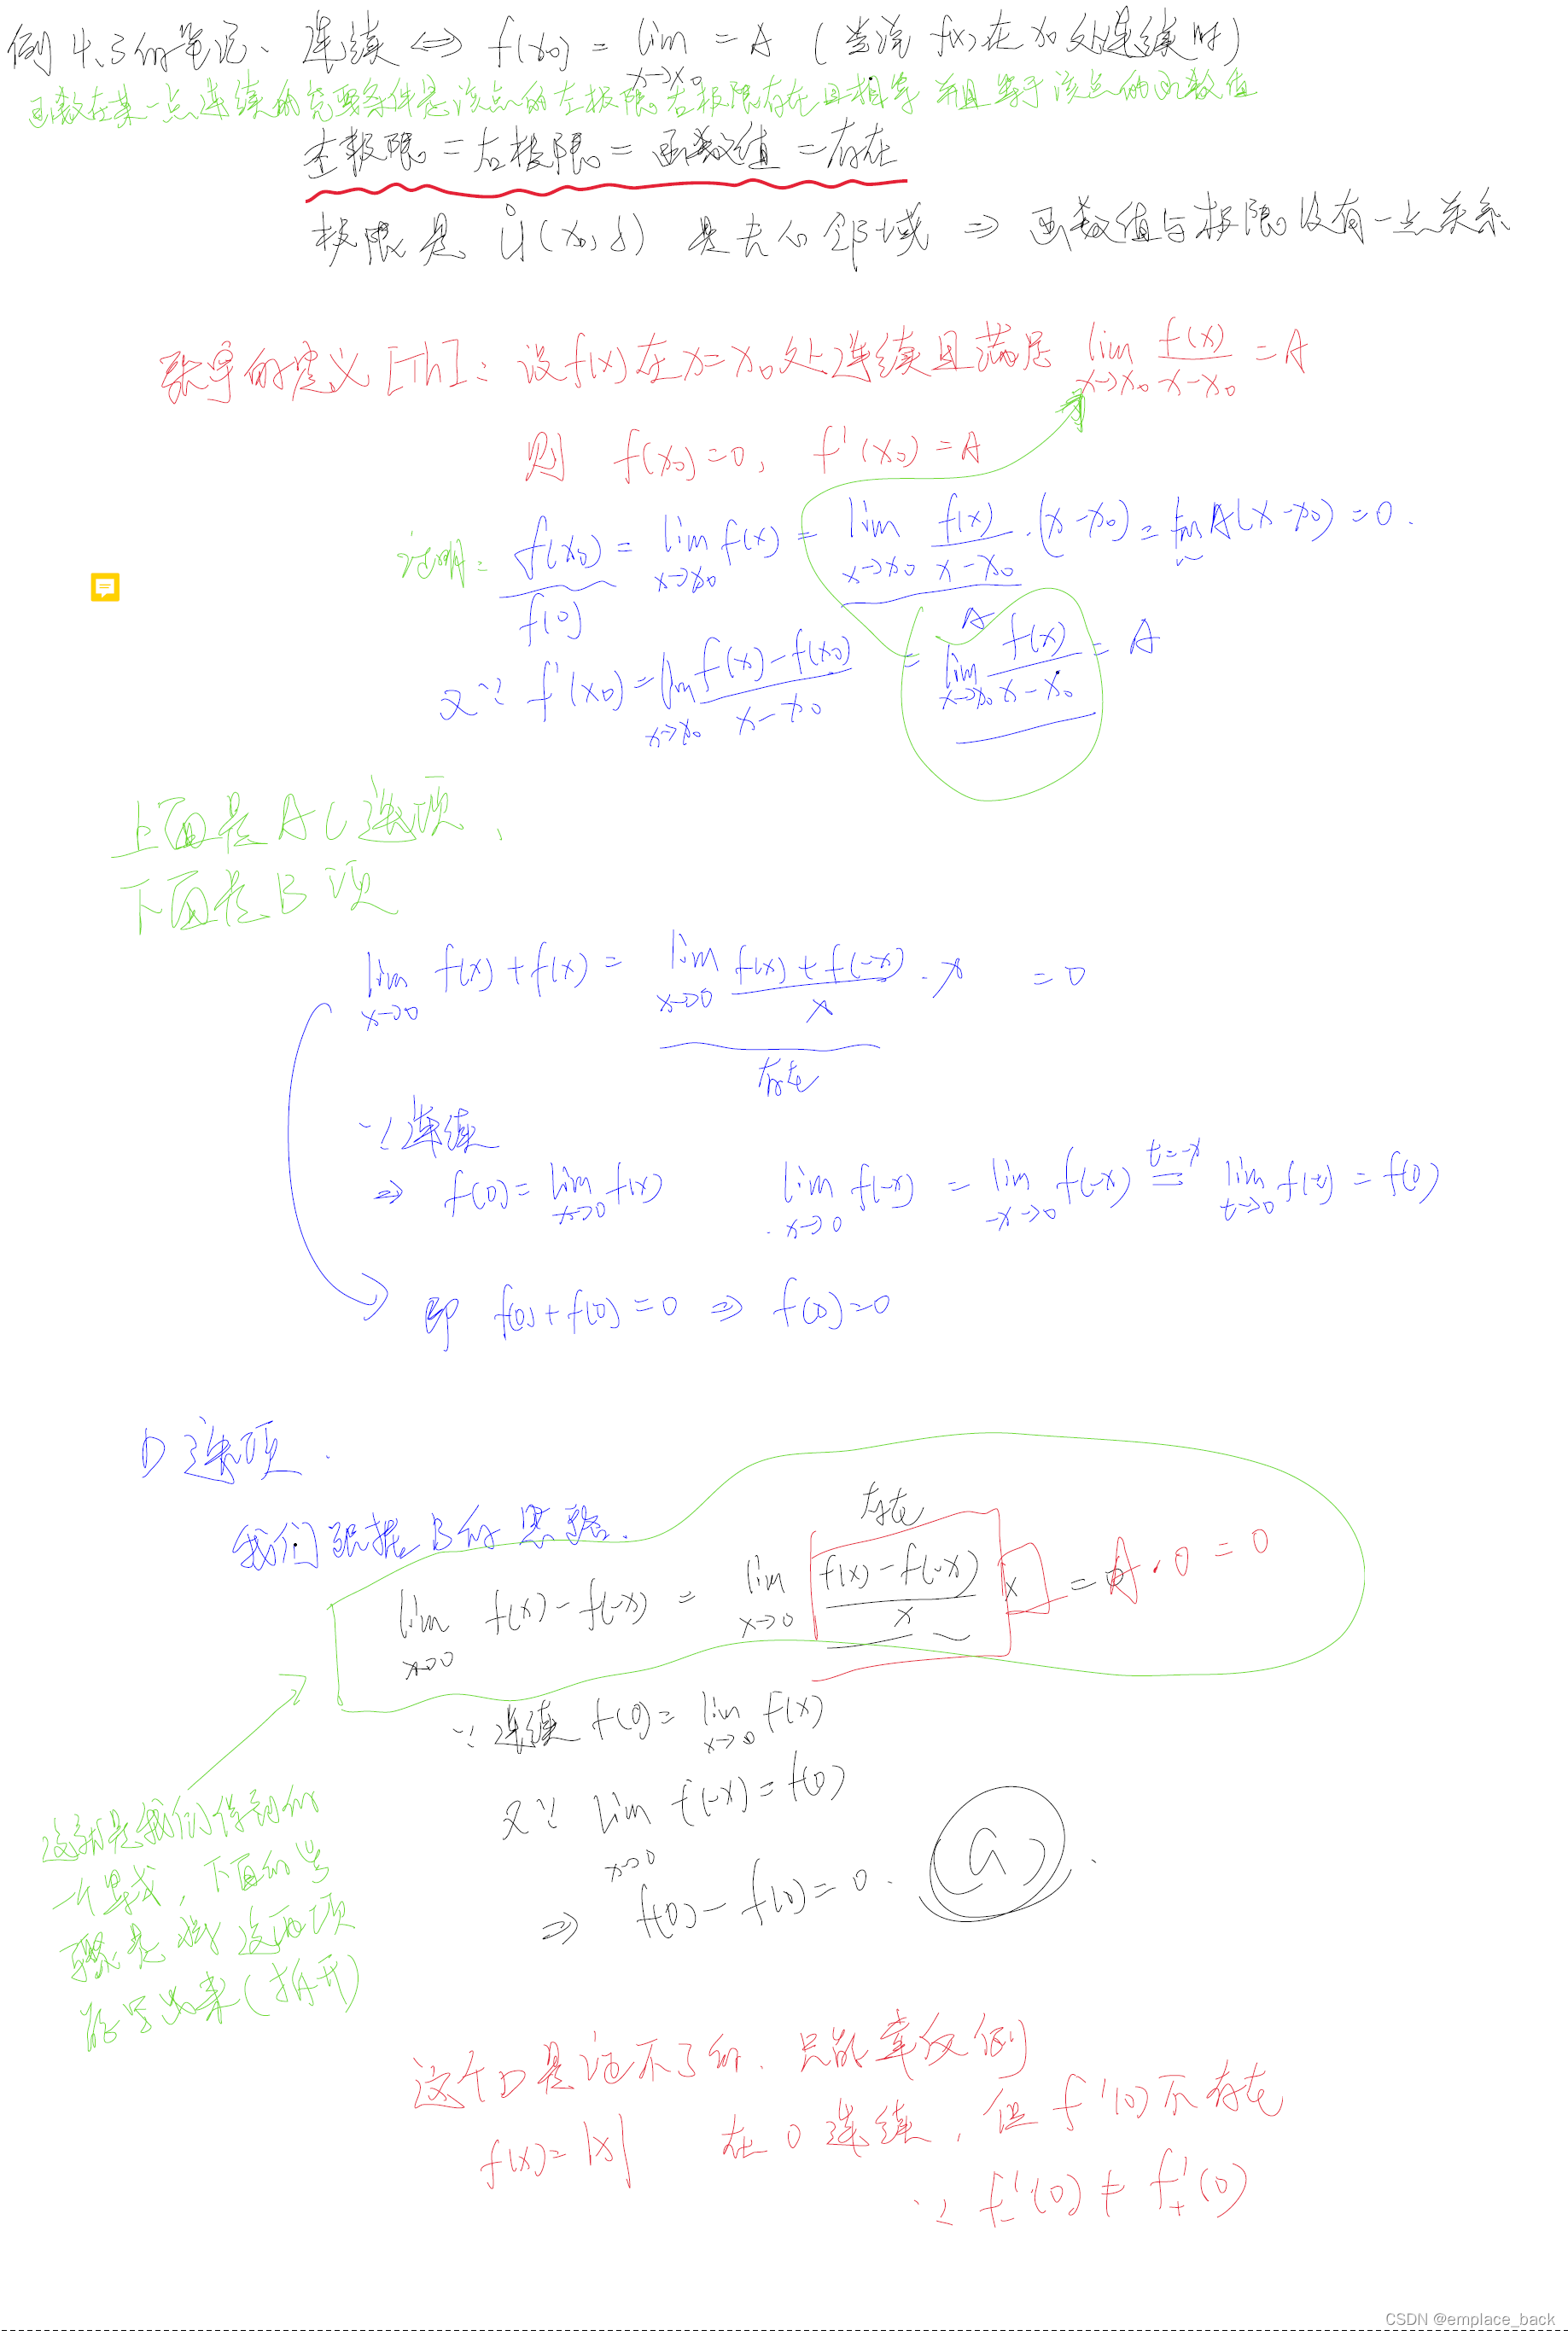 例4.3的笔记、连续 ⇔ f(x₀) = lim x→x₀ = A (当说 f(x)在x₀处连续时)
函数在某一点连续的充要条件是该点的左极限右极限存在且相等 并且等于该点的函数值
左极限 = 右极限 = 函数值 = 存在
极限是 Ů(x₀,δ) 是去心邻域 ⇒ 函数值与极限没有一点关系
张宇的定义[Th]: 设f(x)在x=x₀处连续且满足 lim x→x₀ f(x)/(x-x₀) = A
则 f(x₀)=0, f'(x₀)=A
证明: f(x₀) = lim x→x₀ f(x) = lim x→x₀ f(x)/(x-x₀) ·(x-x₀) = lim A(x-x₀) = 0.
f(0)
A
又∵ f'(x₀) = lim x→x₀ (f(x)-f(x₀))/(x-x₀) = lim x→x₀ f(x)/(x-x₀) = A
上面是AC选项,
下面是B项
lim x→0 f(x)+f(x) = lim x→0 (f(x)+f(-x))/x · x = 0
存在
∵连续
⇒ f(0) = lim x→0 f(x) lim x→0 f(-x) = lim -x→0 f(-x) t=-x = lim t→0 f(t) = f(0)
即 f(0)+f(0)=0 ⇒ f(0)=0
D选项.
我们根据B的思路.
存在
lim x→0 f(x)-f(-x) = lim x→0 (f(x)-f(-x))/x x = A·0 = 0
∵连续 f(0) = lim x→0 f(x)
又∵ lim x→0 f(-x) = f(0)
⇒ f(0)-f(0)=0.
这就是我们得到的
一个等式, 下面的步
骤是 这两项
写出来(拆开)
这个D是证不了的. 只能举反例
f(x)=|x| 在0连续, 但f'(0)不存在
∵ f'₋(0) ≠ f'₊(0)
CSDN @emplace_back